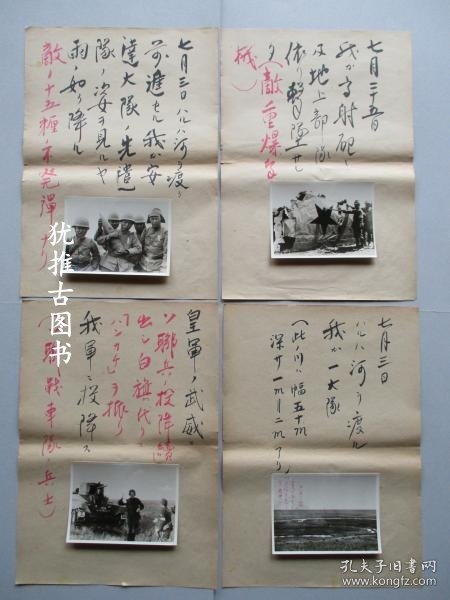 七月三日ハルハ河ヲ渡リ
前進セル我ガ安
達大隊ノ先遣
隊ノ姿ヲ見ルヤ
雨ノ如ク降ル
敵ノ十五糎ノ不発弾ナリ
七月二十五日
我ガ高射砲ト
及地上部隊
依リ撃墜セ
(敵重爆
機)
皇軍ノ武威ニ
ソ聯兵ノ投降続
出シ白旗ノ代リニ
「ハンカチ」ヲ振リ
我軍ニ投降ス
(ソ聯戦車隊ノ兵士)
七月三日
ハルハ河ヲ渡ル
我ガ一大隊
(此ノ川ハ幅五十m
深サ一m―二mアリ)
犹推古图书
孔夫子旧书网
www.kongfz.com